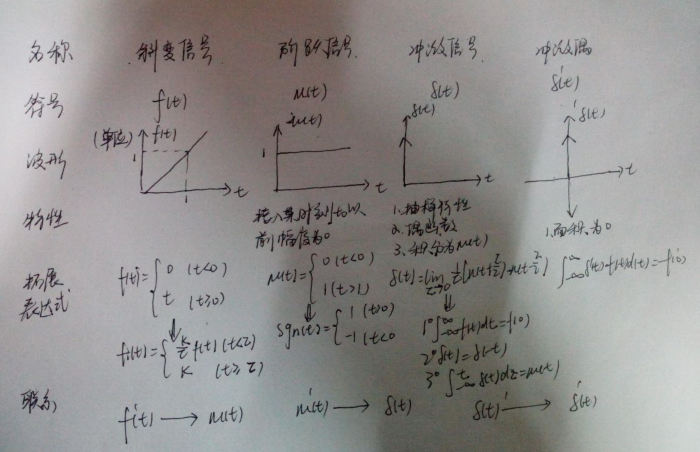 名称 斜变信号 阶跃信号 冲激信号 冲激偶
符号 f(t) u(t) δ(t) δ'(t)
波形 (单位) f(t) 1 1 t u(t) 1 t δ(t) t δ'(t) t
特性 接入某时刻t0以前幅度为0 1.抽样特性 2.偶函数 3.积分为u(t) 1.面积为0
拓展表达式 f(t)={0 (t<0) t (t≥0) u(t)={0(t<0) 1(t>1) δ(t)=lim τ→0 1/τ[u(t+τ/2)+u(t-τ/2)] ∫-∞^∞ δ'(t)f(t)d(t)=-f'(0)
f1(t)={K/τ f(t) (t<τ) K (t≥τ) sgn(t)={1 (t>0) -1 (t<0
1° ∫-∞^∞ f(t)dt=f(0)
2° δ(t)=δ(-t)
3° ∫-∞^t δ(τ)dτ=u(t)
联系 f'(t)→u(t) u'(t)→δ(t) δ(t)'→δ'(t)